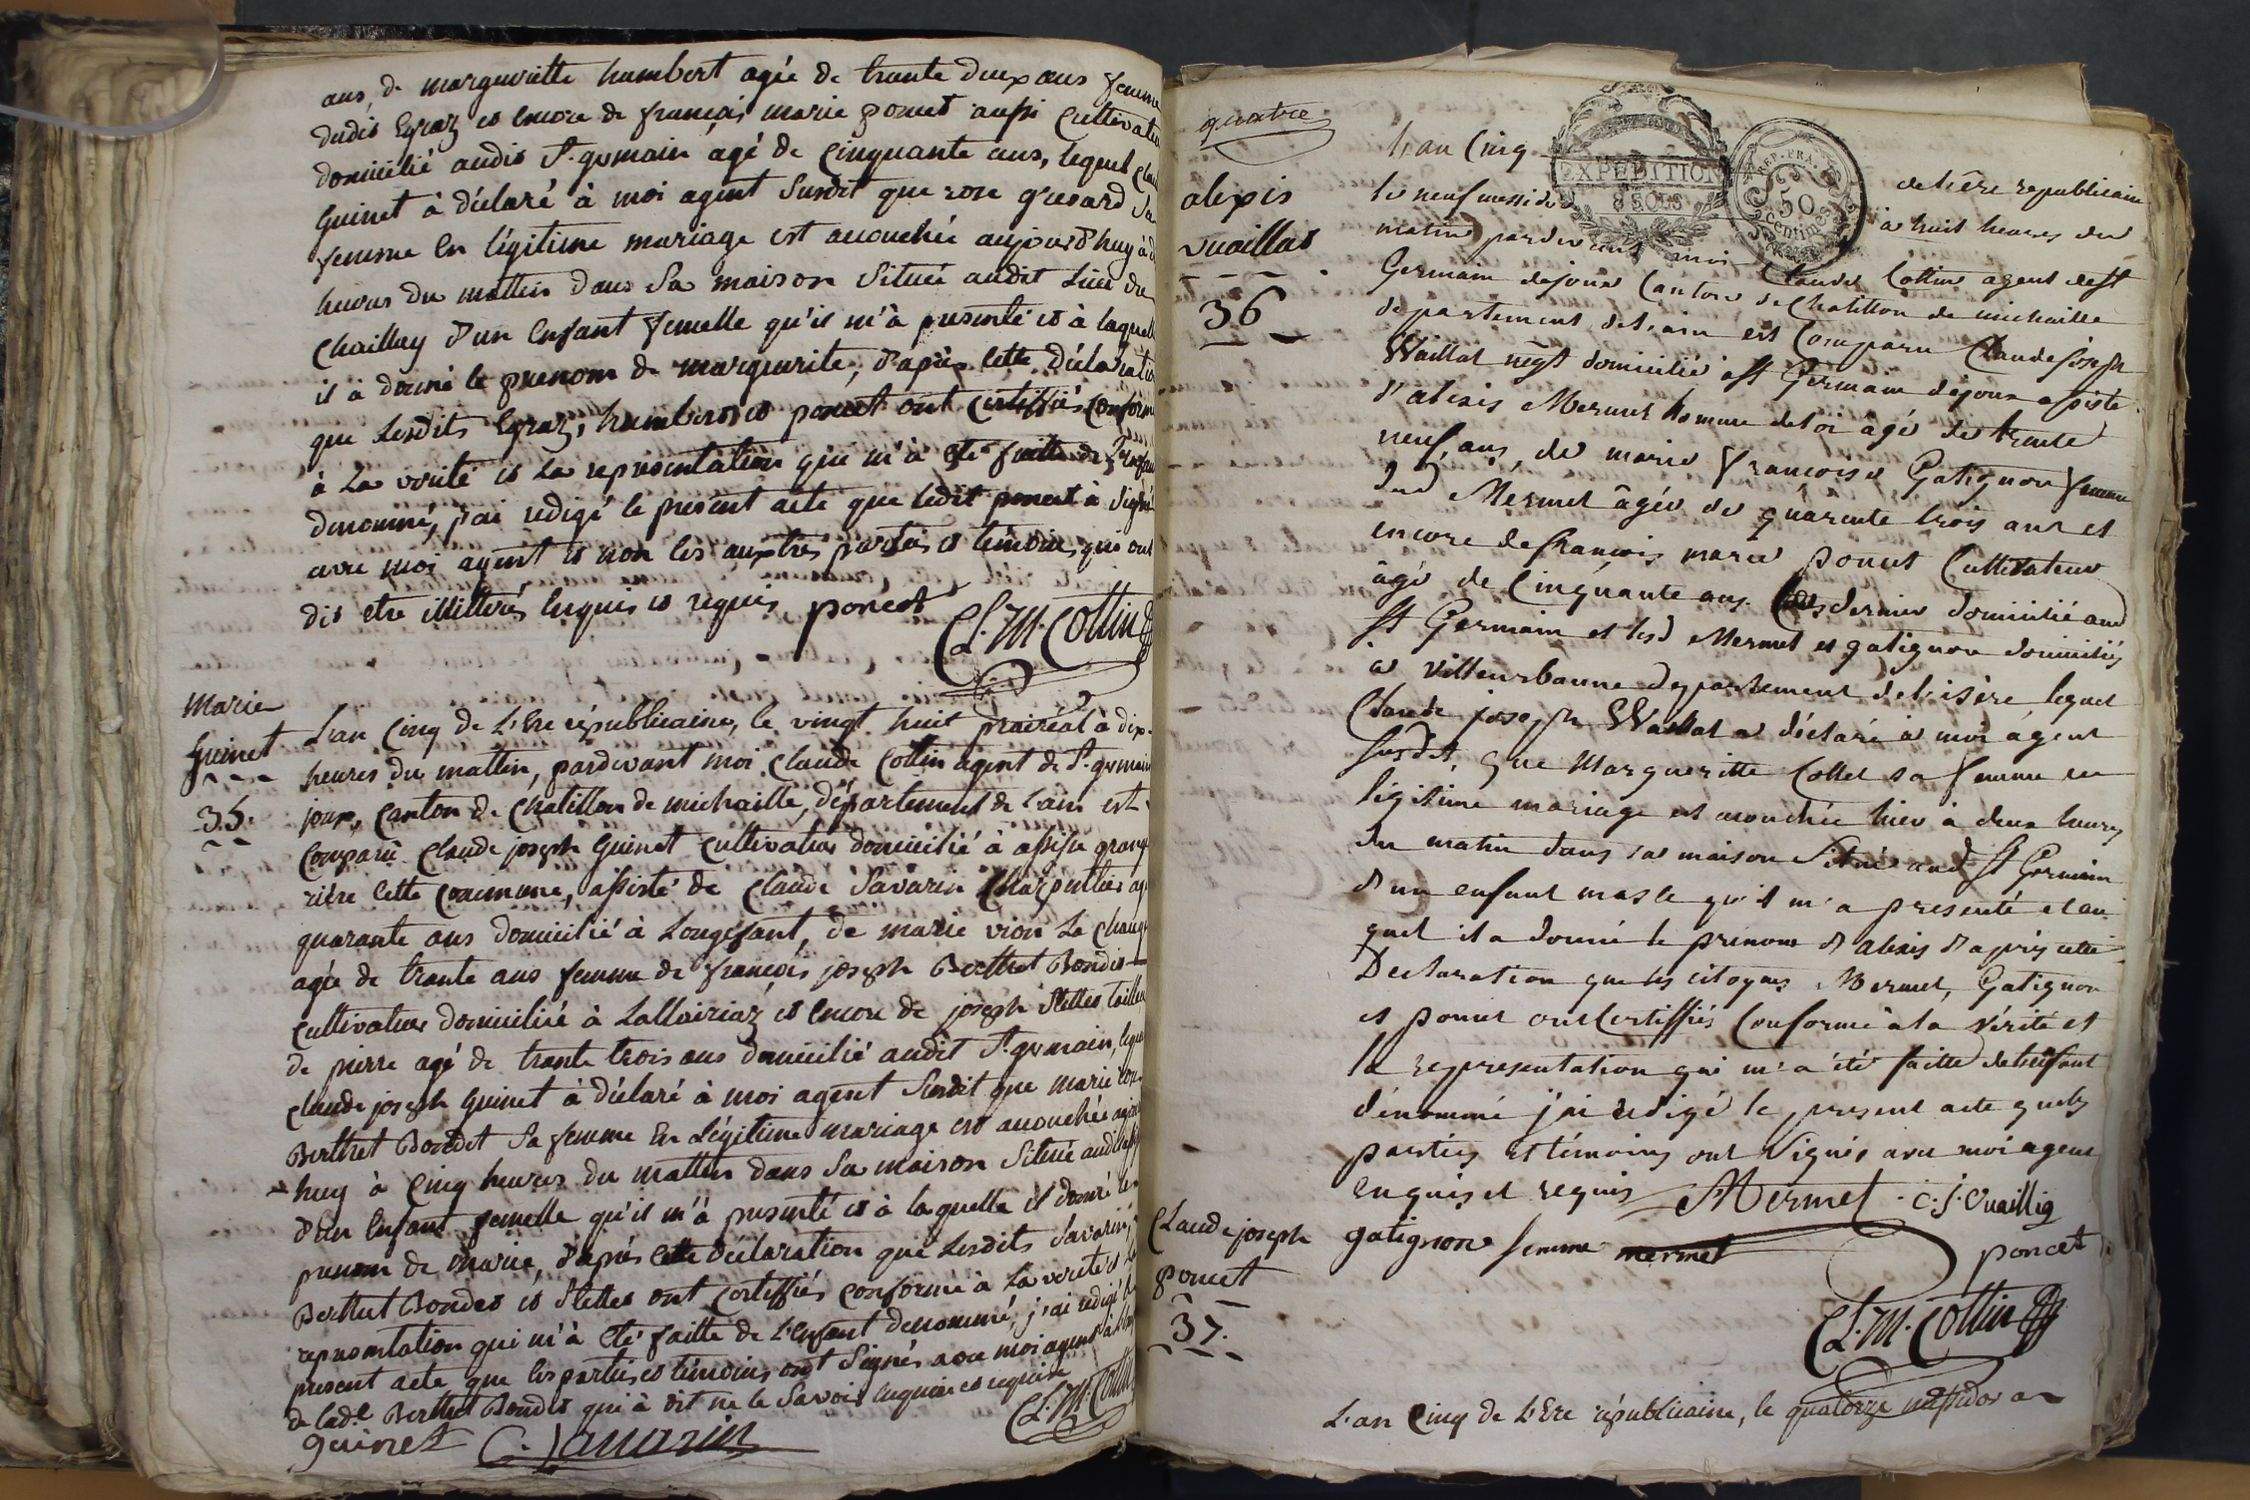 ans, de margueritte humbert agée de trante deux ans femme
dudit Egraz et encore de françois marie poncet aussi Cultivateur
domicilié audit St. germain agé de Cinquante ans, lequel
Guinet à déclaré à moi agent Susdit que rose Sa
femme En légitime mariage est accouchée aujourd'huy à
heures du mattin dans Sa maison Située audit Lieu de
Chaillay d'un Enfant femelle qu'il m'à presenté et à laquelle
il à donné le prenom de marguerite, d'après cette Déclaration
que Lesdits Egraz, humbert et poncet ont Certiffiés Conforme
à La verité et La representation qui m'à été faitte de
denommé, j'ai redigé le present acte que ledit poncet à Signé
avec moi agent et non les auxtres parties et témoins, qui ont
dit etre illitterés Enquis et requis poncet
Cl. M. Collin
Marie
Guinet
35.
L'an Cinq de L'Ere républicaine, le vingt huit prairéal à dix
heures du mattin, pardevant moi Claude Collin agent de St. germain
joux, Canton de Chatillon de michaille, département de L'ain est
Comparu Claude joseph Guinet Cultivateur domicilié à
riere Cette Commune, assisté de Claude Savarin Charpentier
quarante ans domicilié à Longefant, de marie vion La
agée de trante ans femme de françois joseph Berthet Bondet
Cultivateur domiciliée à Lallairiaz et encore de joseph
de pierre agé de trante trois ans domicilié audit St. germain, lequel
Claude joseph Guinet à déclaré à moi agent Susdit que marie
Berthet Bondet Sa femme En Légitime mariage est accouchée
huy à Cinq heures du mattin dans Sa maison Située
d'un Enfant femelle qu'il m'à presenté et à laquelle il donné le
prenom de marie, d'après cette Déclaration que Lesdits Savarin,
Berthet Bondet et ont Certiffiés Conforme à La verité et
representation qui m'à été faitte de L'Enfant denommé, j'ai redigé
present acte que les parties et témoins ont Signés avec moi agent
de lad.e Berthet Bondet qui à dit ne le Savoir Enquise et requise
guinet C. Savarin Cl. M. Collin
quatre
EXPEDITION
8 SOUS
REP. FRA.
50
Centimes
alexis
vuaillat
36
L'an Cinq de l'ère republicaine
le neuf messidor à huit heures du
matin pardevant moi Claude Collin agent de St
Germain dejoux Canton de Chatillon de michaille
departement de l'ain est Comparu Claude joseph
Waillat négt domicilié à St Germain dejoux assisté
d'alexis Mermet homme de loi âgé de trente
neuf ans, de marie françoise Gatignon femme
dud Mermet âgée de quarente trois ans et
encore de françois marie poncet Cultivateur
âgé de Cinquante ans Ces dernier domicilié aud
St Germain et lesd Mermet et gatignon domiciliés
à villeurbanne departement de l'isère lequel
Claude joseph Waillat a déclaré à moi agent
susdit, que Margueritte Collet sa femme en
légitime mariage est acouchée hier à deux heures
du matin dans sa maison Située aud St Germain
d'un enfant masle qu'il m'a presenté et au
quel il a donné le prenom d'alexis d'après cette
Declaration que les citoyens Mermet, Gatignon
et poncet ont Certiffiés Conforme à la vérité et
la representation qui m'a été faitte de l'enfant
dénommé j'ai redigé le present acte que les
parties et témoins ont Signés avec moi agent
enquis et requis Mermet C. j. Vuaillia
gatignon femme mermet
poncet
Cl. M. Collin
Claude joseph
poncet
37.
L'an Cinq de L'Ere républicaine, le quatorze messidor a